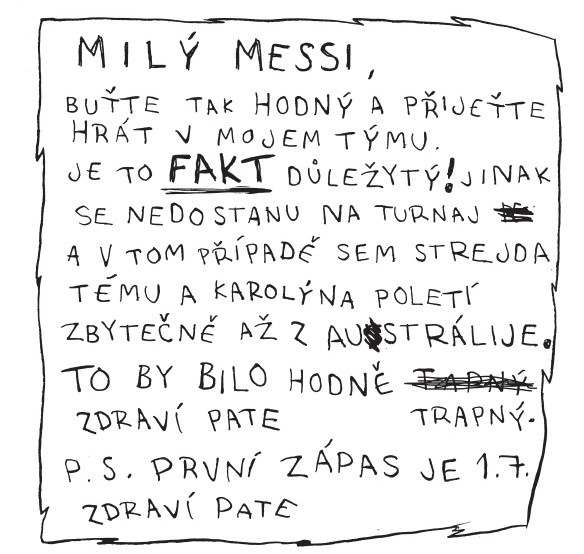 MILÝ MESSI,
BUŤTE TAK HODNÝ A PŘIJEŤTE
HRÁT V MOJEM TÝMU.
JE TO FAKT DŮLEŽYTÝ! JINAK
SE NEDOSTANU NA TURNAJ
A V TOM PŘÍPADĚ SEM STREJDA
TÉMU A KAROLÝNA POLETÍ
ZBYTEČNĚ AŽ Z AUSTRÁLIJE.
TO BY BILO HODNĚ TAPNÝ
ZDRAVÍ PATE TRAPNÝ.
P.S. PRVNÍ ZÁPAS JE 1.7.
ZDRAVÍ PATE